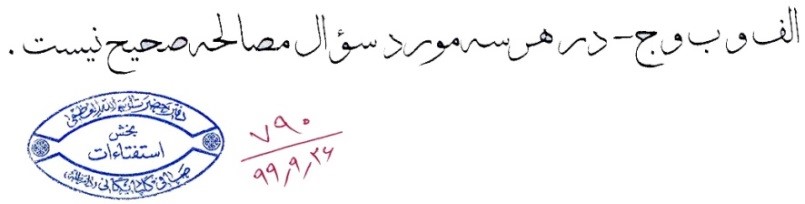 الف و ب و ج - در هر سه مورد سؤال مصالحه صحیح نیست .
دفتر حضرت آیة الله العظمی
بخش
استفتاءات
صافی گلپایگانی
۷۹۰
۹۹٫۹٫۲۶